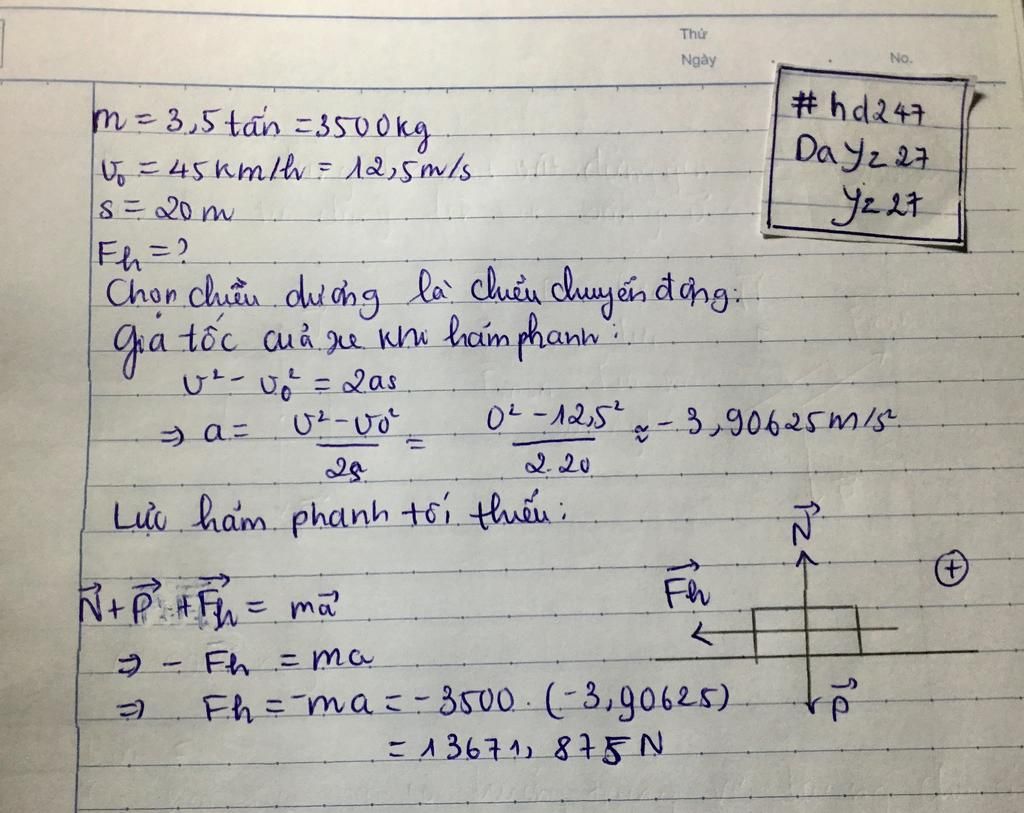 Thứ
Ngày
No.
#hd247
Dayz27
yz27
m = 3,5 tấn = 3500kg
v₀ = 45km/h = 12,5m/s
s = 20 m
Fh = ?
Chọn chiều dương là chiều chuyển động:
Gia tốc của xe khi hãm phanh:
v² - v₀² = 2as
⇒ a = (v² - v₀²)/(2s) = (0² - 12,5²)/(2.20) ≈ - 3,90625m/s²
Lực hãm phanh tối thiểu:
N⃗ + P⃗ + F⃗h = ma⃗
⇒ - Fh = ma
⇒ Fh = -ma = -3500.(-3,90625)
= 13671,875 N
N⃗
+
F⃗h
P⃗